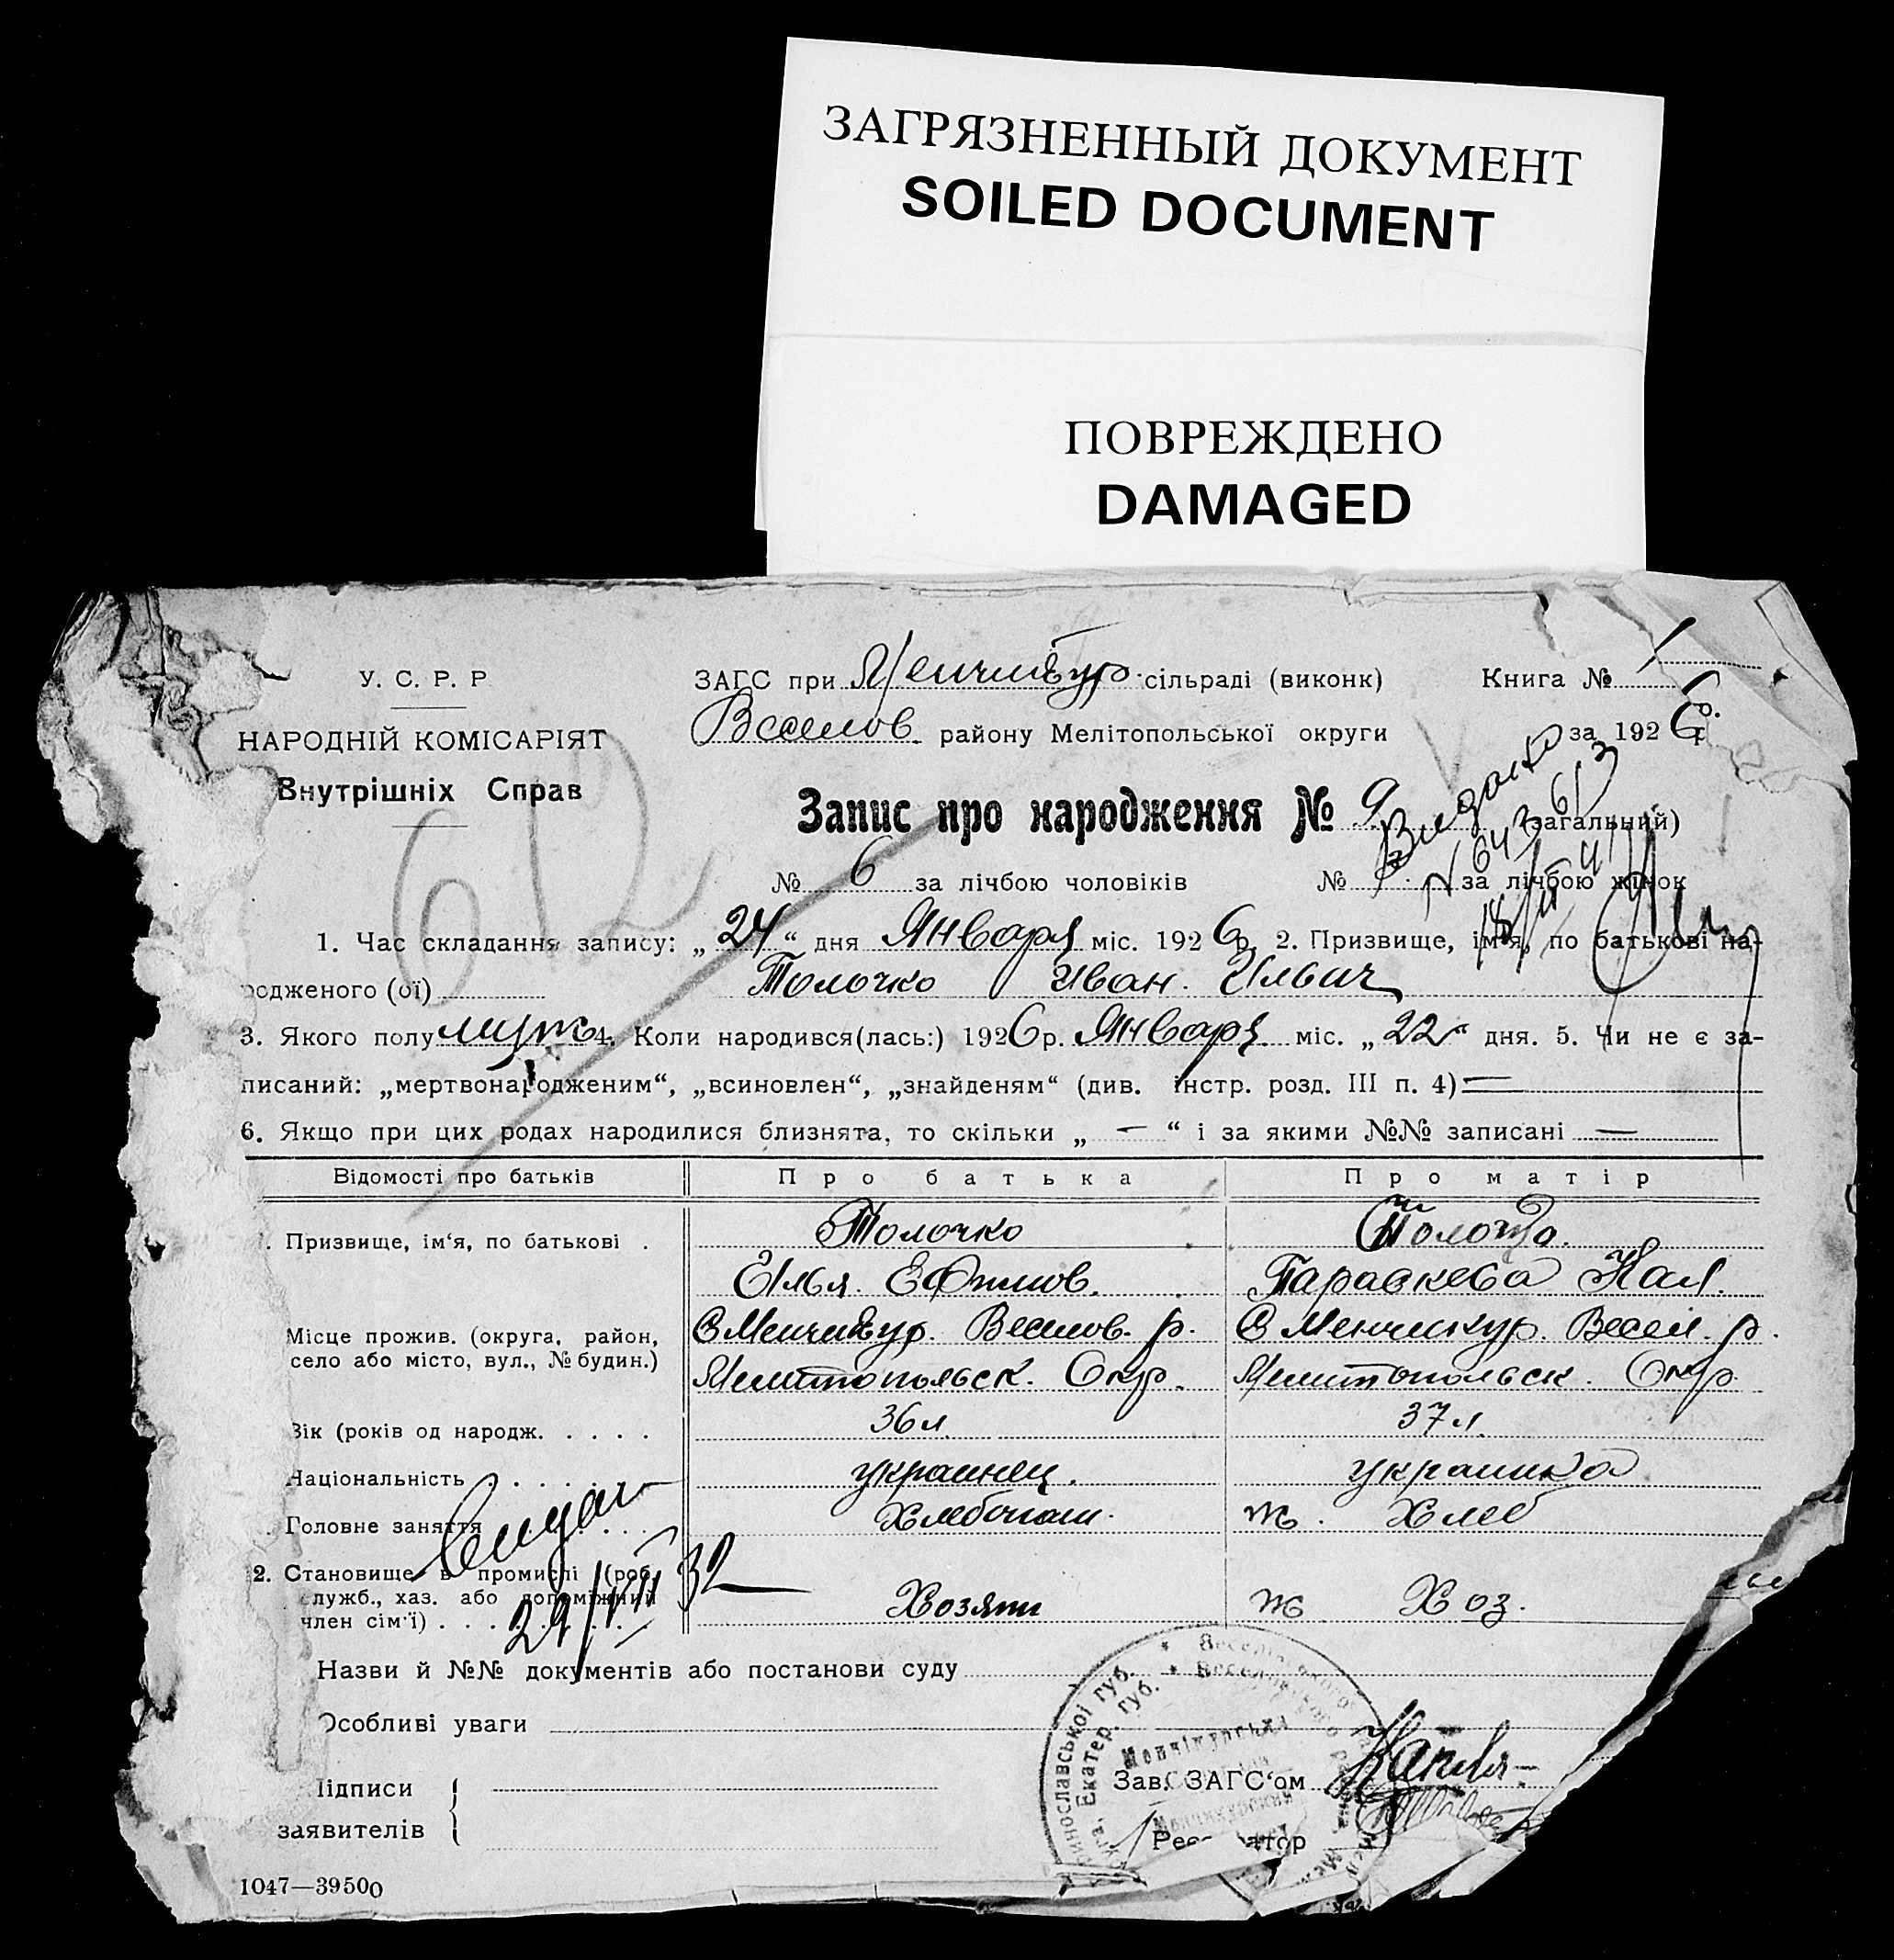 ЗАГРЯЗНЕННЫЙ ДОКУМЕНТ
SOILED DOCUMENT
ПОВРЕЖДЕНО
DAMAGED
У. С. Р. Р
НАРОДНІЙ КОМІСАРІЯТ
Внутрішніх Справ
ЗАГС при Менчикур. сільраді (виконк) Книга № 1
Веселов району Мелітопольської округи за 1926 р.
Запис про народження № 9 (загальний)
Видано
№ 6 за лічбою чоловіків № за лічбою жінок
1. Час складання запису: „24“ дня Января міс. 1926 р. 2. Призвище, ім'я, по батькові на-
родженого (ої) Толочко Иван. Ильич
3. Якого полу муж 4. Коли народився(лась:) 1926 р. Января міс. „22“ дня. 5. Чи не є за-
писаний: „мертвонародженим“, „всиновлен“, „знайденям“ (див. інстр. розд. III п. 4) —
6. Якщо при цих родах народилися близнята, то скільки „ — “ і за якими №№ записані —
Відомості про батьків Про батька Про матір
Призвище, ім'я, по батькові . Толочко
Илья. Ефимов. Параскева Кал.
Місце прожив. (округа, район, С Менчикур. Веселов. р. С Менчикур. Весел. р.
село або місто, вул., № будин.) Мелитопольск. Окр. Мелитопольск. Окр.
Вік (років од народж. . . . . 36 л. 37 л.
Національність . . . . . украинец. украинка
Головне заняття . . . Хлебопаш. ж. Хлеб
2. Становище в промислі (роб.
служб., хаз. або допоміжний Хозяин ж Хоз.
член сім'ї) . . . . . . . .
29/VII 32
Назви й №№ документів або постанови суду
Особливі уваги
Підписи
заявителів
Зав. ЗАГС'ом
Реєстратор
1047—39500